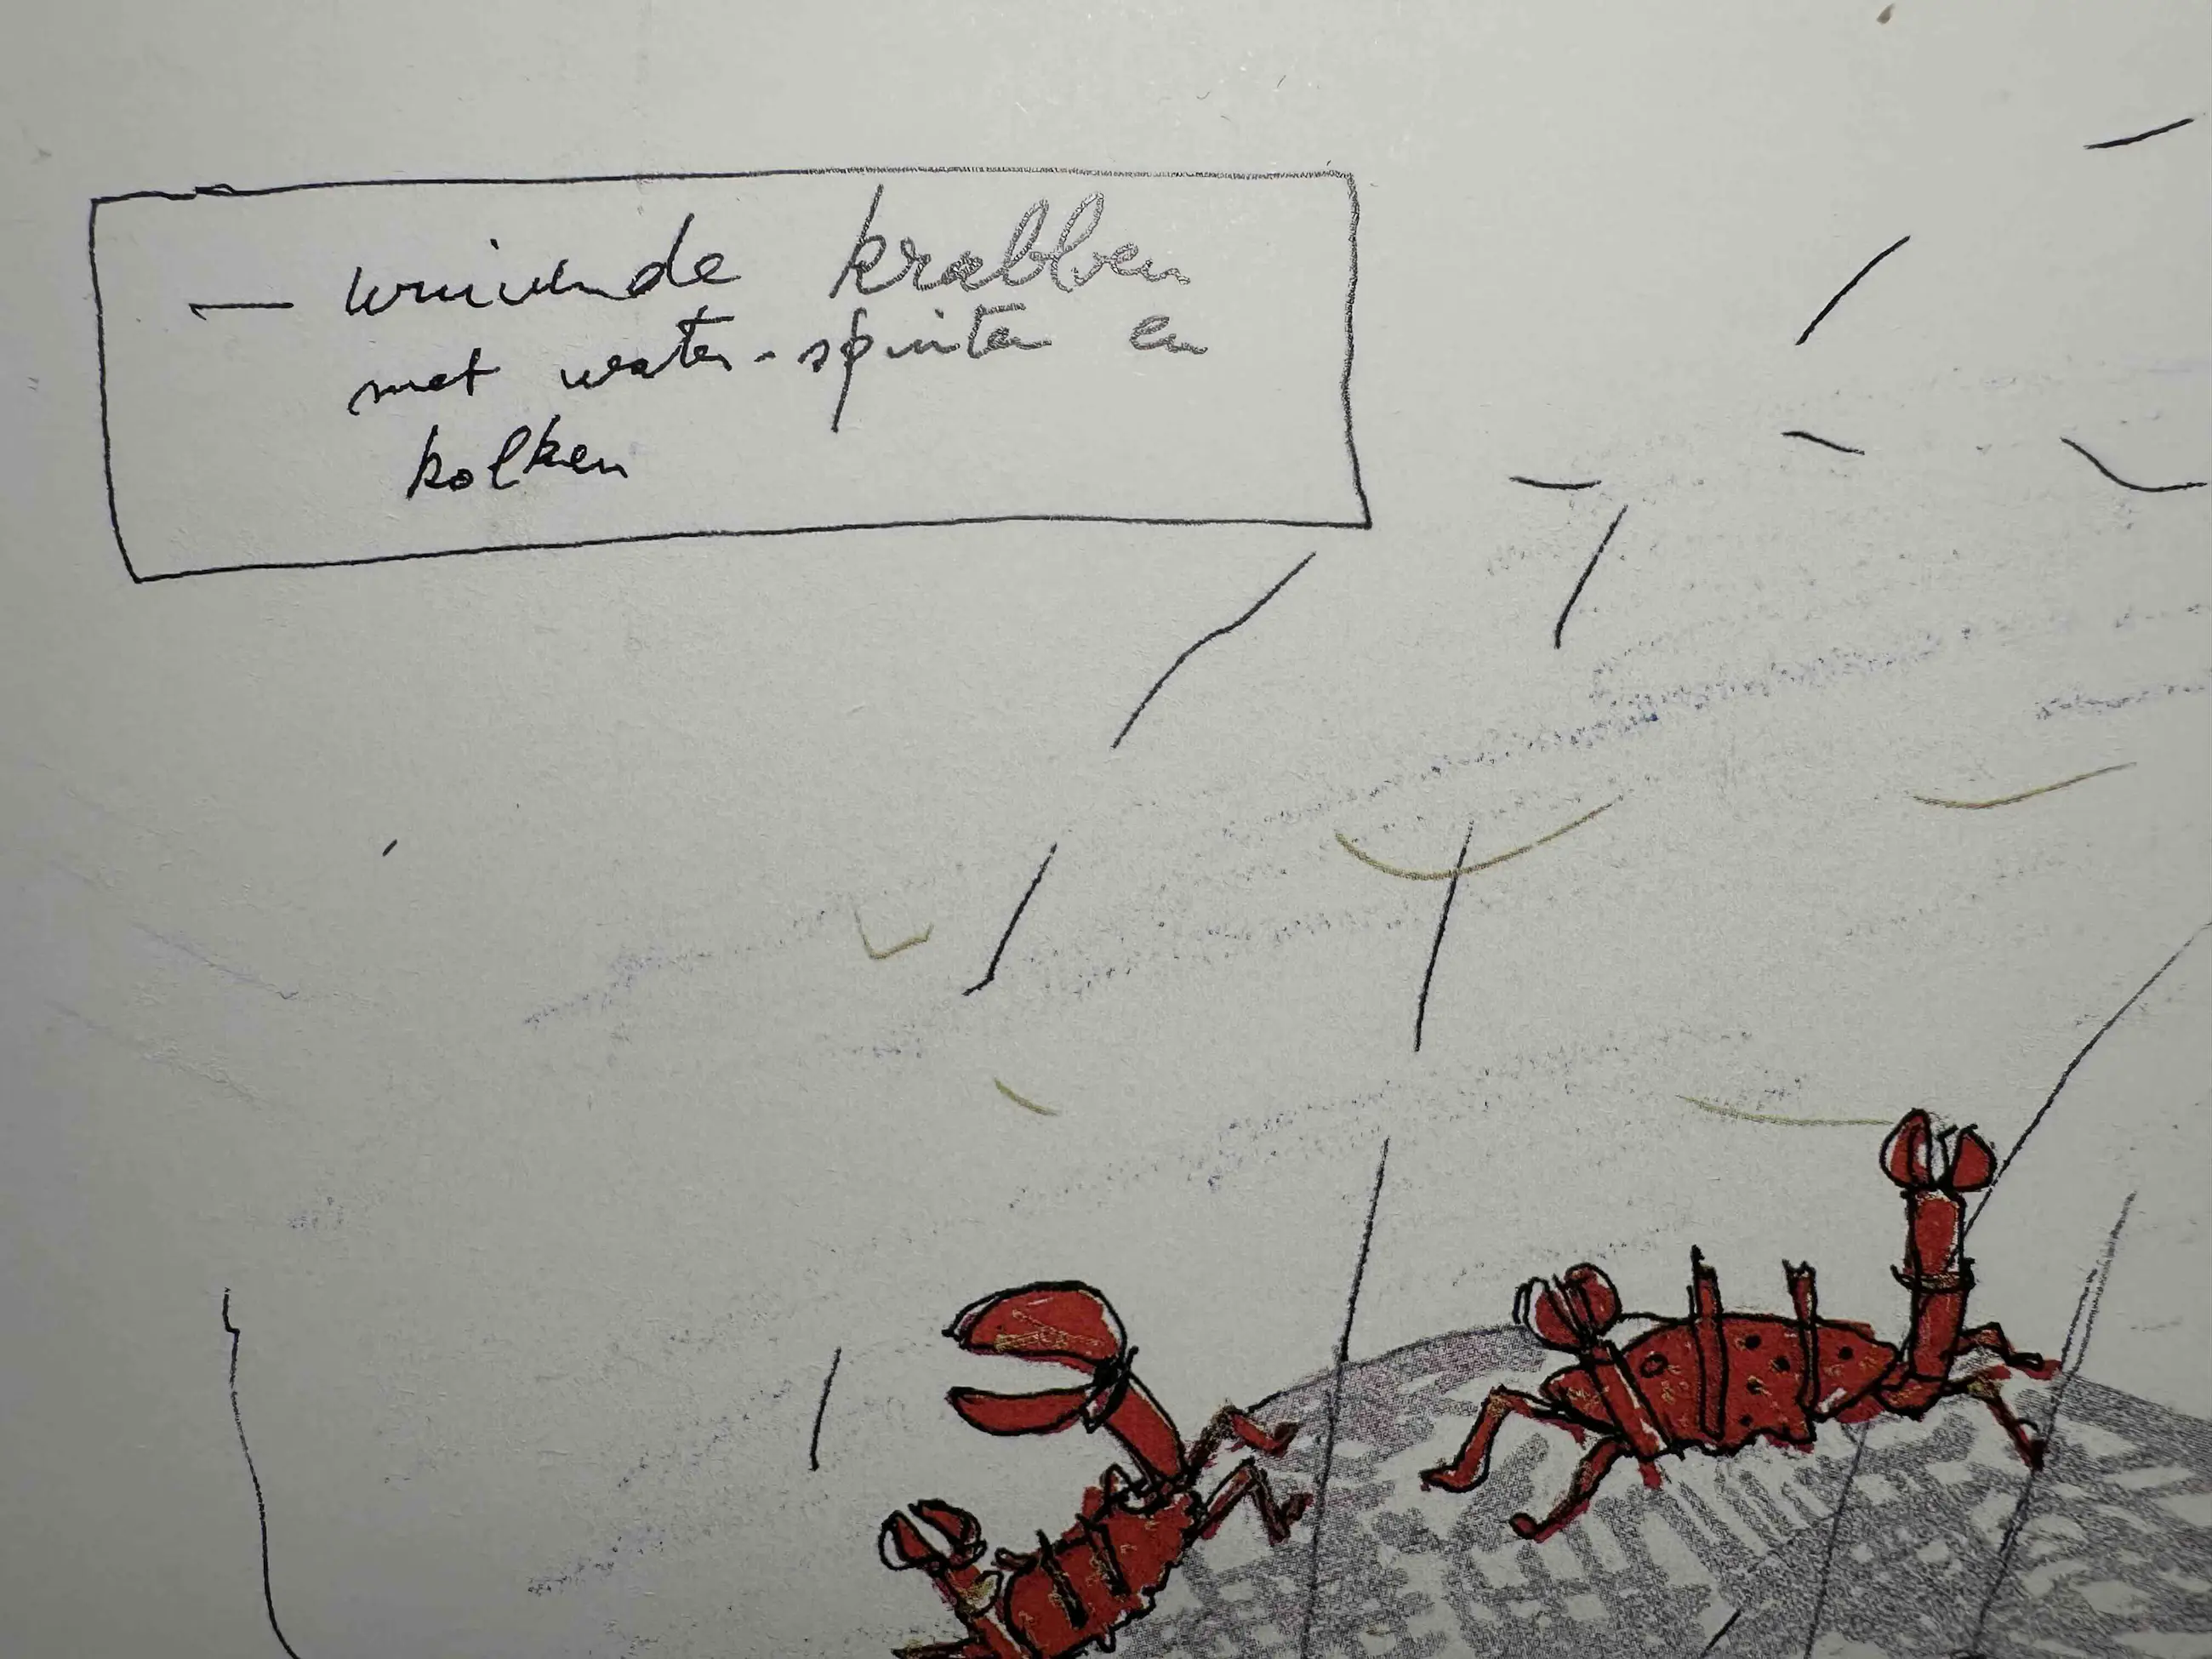 — wuivende krabben
met water-spuiten en
kolken